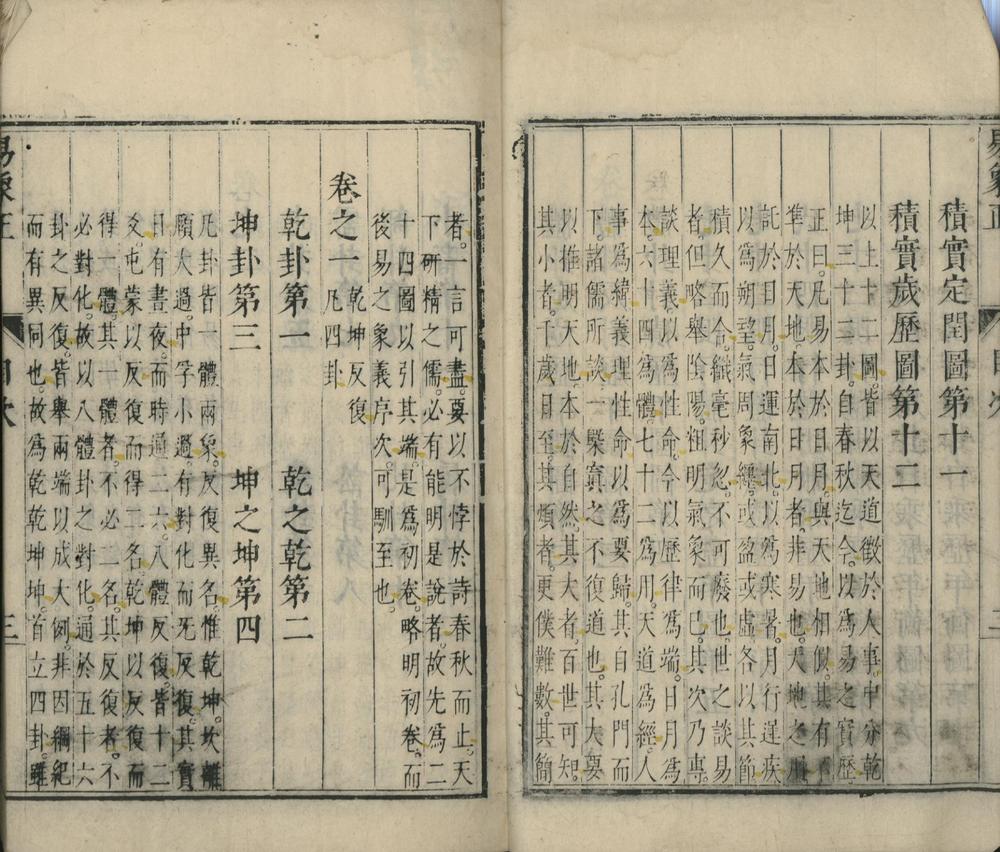 積實定閏圖第十一
積實歲歷圖第十二
以上十二圖皆以天道徵於人事中分乾
坤三十三卦自春秋迄今以爲易之實歷
正曰凡易本於日月與天地相似其有不
準於天地本於日月者非易也天地之用
託於日月日運南北以爲寒暑月行遲疾
以爲朔望氣周象纏或盈或虛各以其節
積久而合纖毫秒忽不可廢也世之談易
者但略舉陰陽粗明氣象而已其次乃專
談理義以爲性命今以歷律爲端日月爲
本六十四爲體七十二爲用天道爲經人
事爲緯義理性命以爲要歸其自孔門而
下諸儒所談一槩寘之不復道也其大要
以推明天地本於自然其大者百世可知
其小者千歲日至其煩者更僕難數其簡
者一言可盡要以不悖於詩春秋而止天
下研精之儒必有能明是說者故先爲二
十四圖以引其端是爲初卷略明初卷而
後易之象義序次可馴至也
卷之一 乾坤反復 凡四卦
乾卦第一 乾之乾第二
坤卦第三 坤之坤第四
凡卦皆一體兩象反復異名惟乾坤坎離
頤大過中孚小過有對化而无反復其實
日有晝夜而時通二六八體反復皆十二
爻屯蒙以反復而得二名乾坤以反復而
得一體其一體者不必二名其反復者不
必對化故以八體卦之對化通於五十六
卦之反復皆舉兩端以成大例非因綱紀
而有異同也故爲乾乾坤坤首立四卦雖
易象正 目次 三